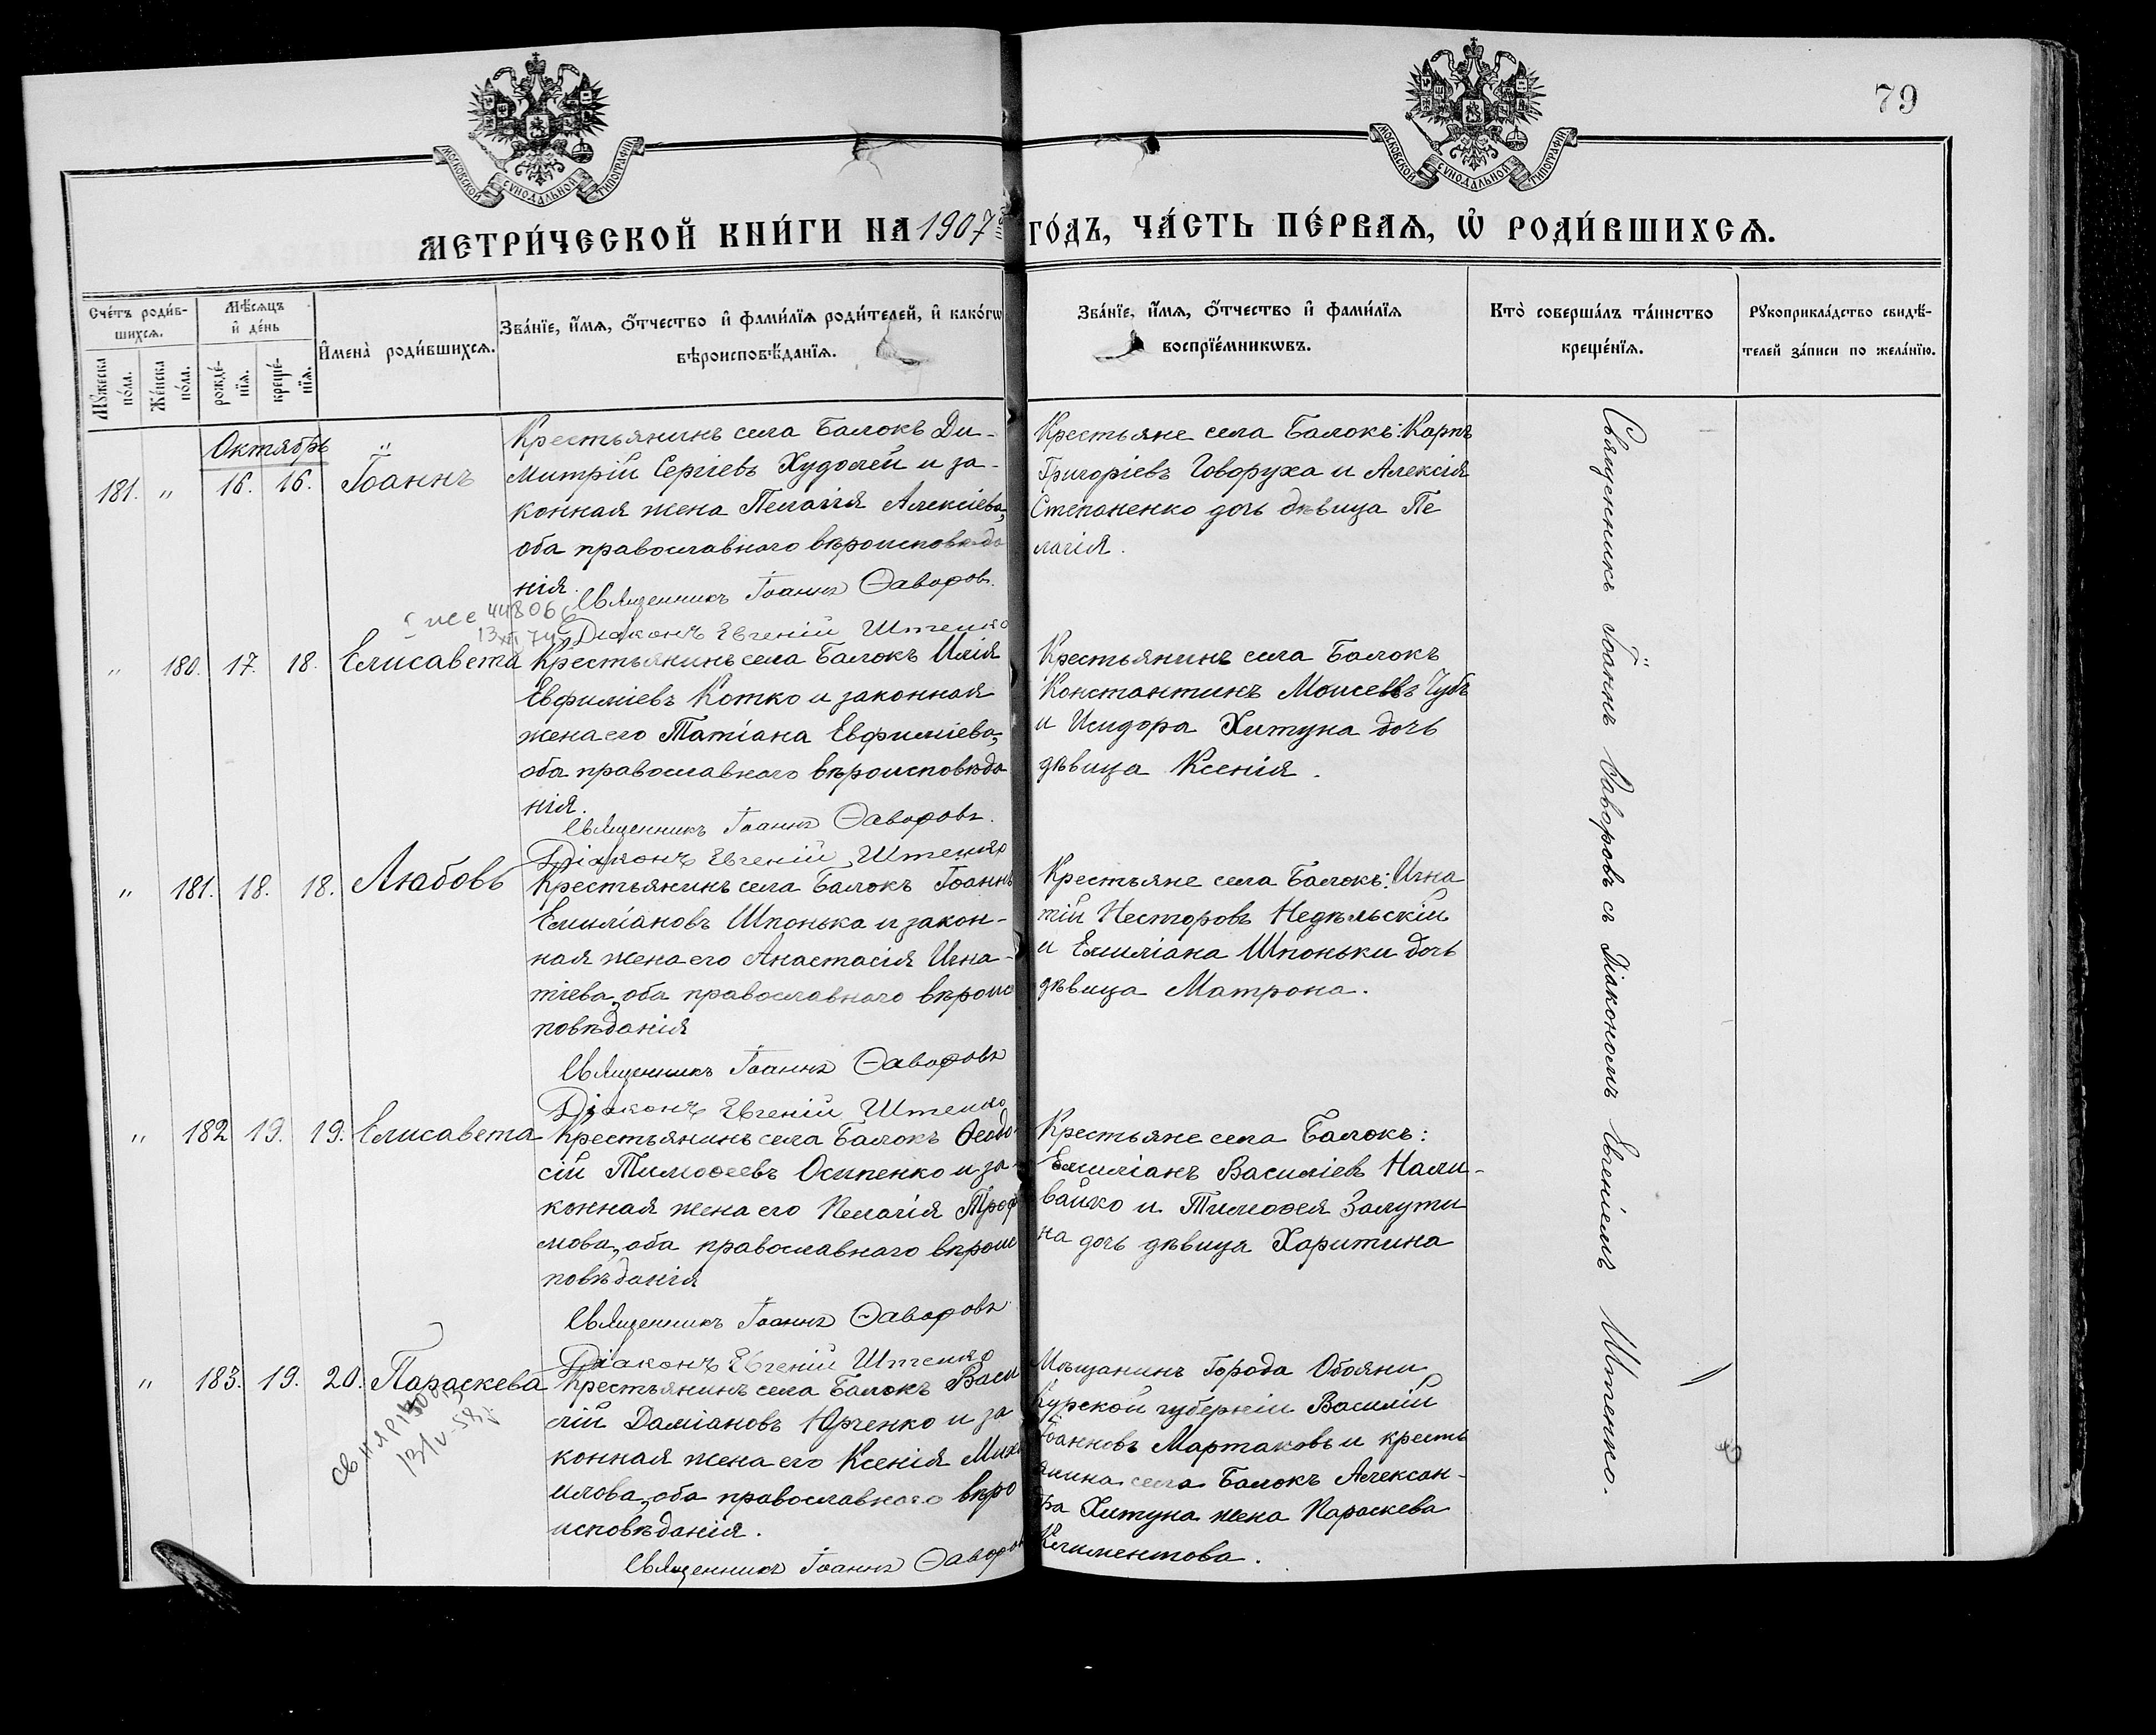 79
МОСКОВСКОЙ СѴНОДАЛЬНОЙ ТИПОГРАФІИ
МОСКОВСКОЙ СѴНОДАЛЬНОЙ ТИПОГРАФІИ
МЕТРИ́ЧЕСКОЙ КНИ́ГИ НА 1907 ГО́ДЪ, ЧА́СТЬ ПЕ́РВАѦ, Ѡ҆ РОДИ́ВШИХСѦ.
Сче́тъ роди́в-
шихсѧ.
Мꙋ́жеска по́ла.
Же́нска по́ла.
Мѣ́сѧцъ и҆ де́нь
рожде́-
нїѧ.
креще́-
нїѧ.
И҆мена̀ роди́вшихсѧ.
Зва́нїе, и҆́мѧ, ѻ҆́тчество и҆ фами́лїѧ роди́телей, и҆ како́гѡ
вѣроисповѣ́данїѧ.
Зва́нїе, и҆́мѧ, ѻ҆́тчество и҆ фами́лїѧ
воспрїе́мникѡвъ.
Кто̀ соверша́лъ та́инство
креще́нїѧ.
Рꙋкоприкла́дство свидѣ́-
телей за́писи по жела́нїю.
Октябрь
181. " 16. 16. Іоаннъ
Крестьянинъ села Балокъ Ди-
митрій Сергіевъ Худолей и за-
конная жена Пелагія Алексіева,
оба православнаго вѣроисповѣда
нія.
Священникъ Іоаннъ Ѳаворовъ.
Діаконъ Евгеній Штепенко
Крестьяне села Балокъ: Карпъ
Григоріевъ Говоруха и Алексія
Степаненко дочь дѣвица Пе
лагія.
448066
" 180. 17. 18. Елисавета
Крестьянинъ села Балокъ Илія
Евфиміевъ Котко и законная
жена его Татіана Евфиміева,
оба православнаго вѣроисповѣда
нія.
Священникъ Іоаннъ Ѳаворовъ.
Діаконъ Евгеній Штепенко
Крестьянинъ села Балокъ
Константинъ Моисеевъ Чубъ
и Исидора Хитуна дочь
дѣвица Ксенія.
" 181. 18. 18. Любовь
Крестьянинъ села Балокъ Іоаннъ
Емиліановъ Шпонька и закон-
ная жена его Анастасія Игна-
тіева, оба православнаго вѣроис
повѣданія
Священникъ Іоаннъ Ѳаворовъ
Діаконъ Евгеній Штепенко
Крестьяне села Балокъ: Игна
тій Несторовъ Недѣльскій
и Емиліана Шпоньки дочь
дѣвица Матрона.
" 182 19. 19. Елисавета
Крестьянинъ села Балокъ Ѳеодо-
сій Тимоѳеевъ Осипенко и за-
конная жена его Пелагія Троф
мова, оба православнаго вѣроис
повѣданія
Священникъ Іоаннъ Ѳаворовъ
Діаконъ Евгеній Штепенко
Крестьяне села Балокъ:
Емиліанъ Василіев Нали-
вайко и Тимоѳея Залути
на дочь дѣвица Харитина
" 183. 19. 20. Параскева
Крестьянинъ села Балокъ Васи
лій Даміановъ Юрченко и за
конная жена его Ксенія Миха
илова, оба православнаго вѣро
исповѣданія.
Священникъ Іоаннъ Ѳаворовъ
Мѣщанинъ Города Обояни
Курской губерніи Василій
Іоанновъ Мартаковъ и кресть
янина села Балокъ Алексан-
дра Хитуна жена Параскева
Климентова.
Священникъ Іоаннъ Ѳаворовъ съ Діакономъ Евгеніемъ Штепенко.